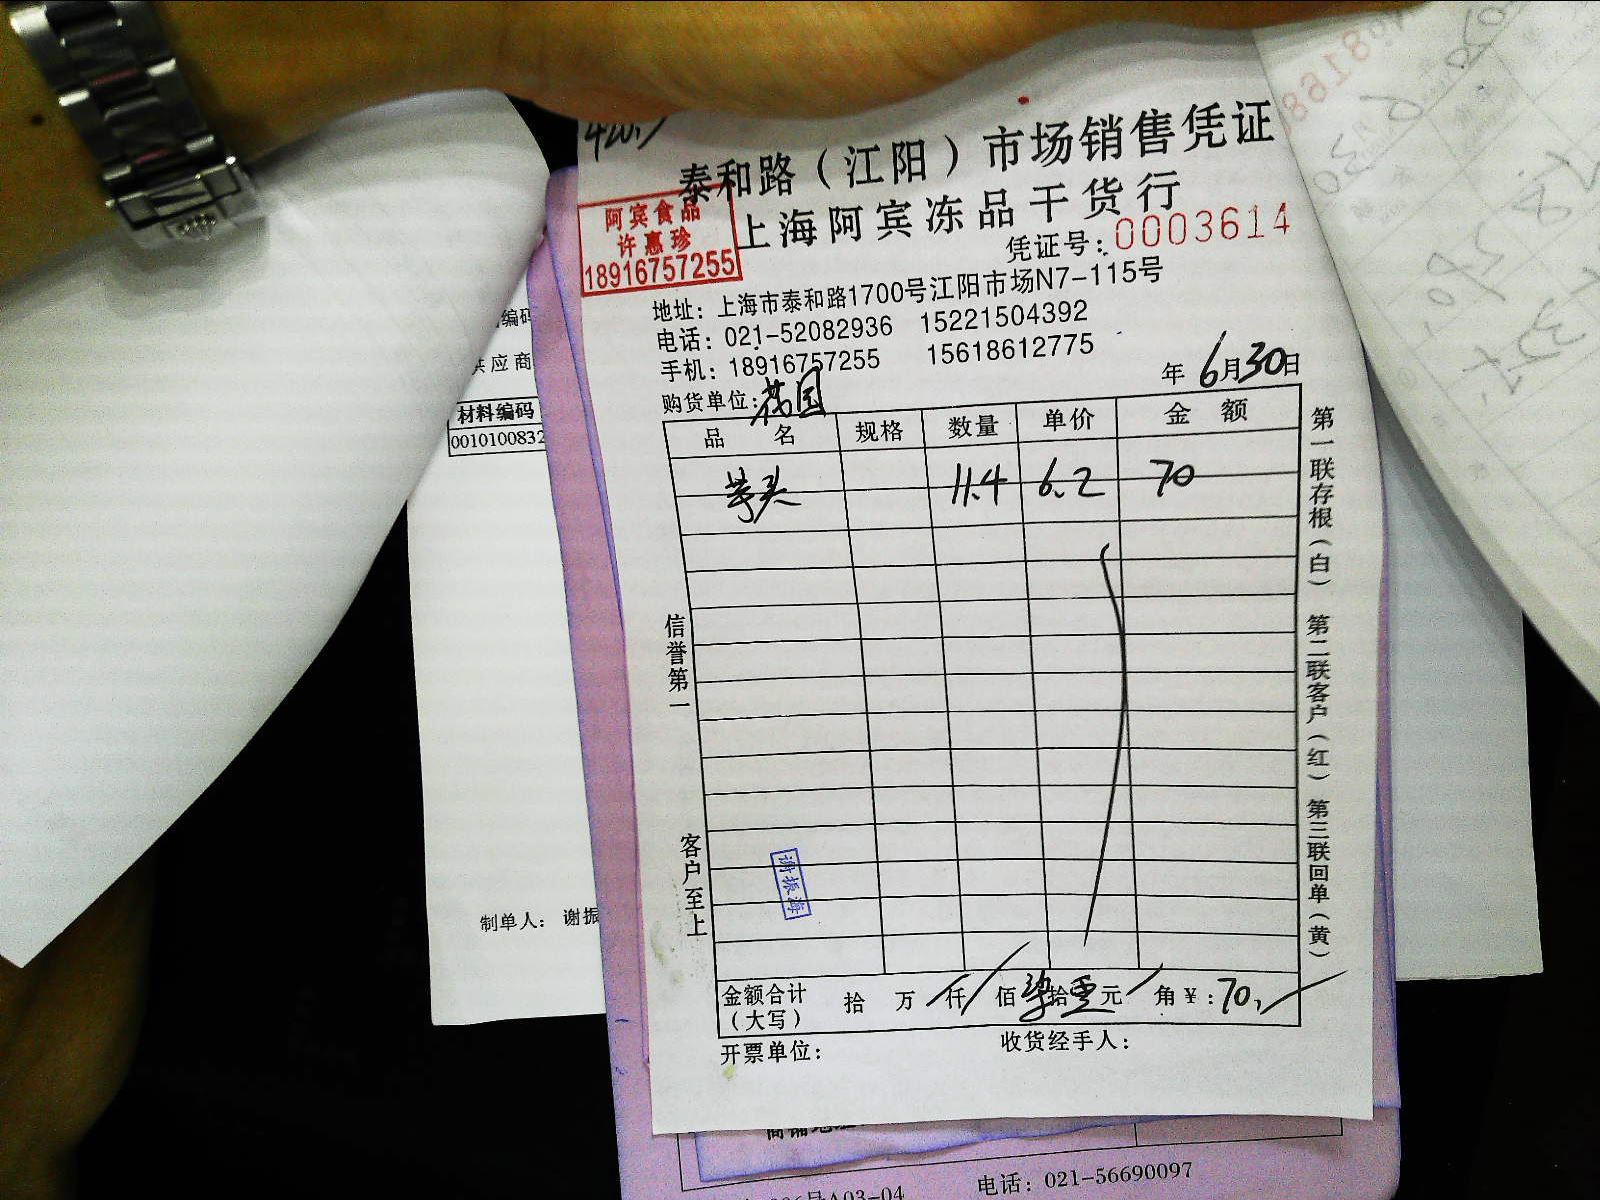 泰和路（江阳）市场销售凭证
上海阿宾冻品干货行
阿宾食品
许惠珍
18916757255
凭证号：0003614
地址：上海市泰和路1700号江阳市场N7-115号
电话：021-52082936 15221504392
手机：18916757255 15618612775
年 6月30日
购货单位：花园
品名 规格 数量 单价 金额
芋头 11.4 6.2 70
信誉第一
客户至上
第一联存根（白） 第二联客户（红） 第三联回单（黄）
谢振海
金额合计（大写） 拾 万 仟 佰 柒拾 元 角 ¥：70
开票单位：
收货经手人：
编码
供应商
材料编码
0010100832
制单人： 谢振
电话：021-56690097
A03-04